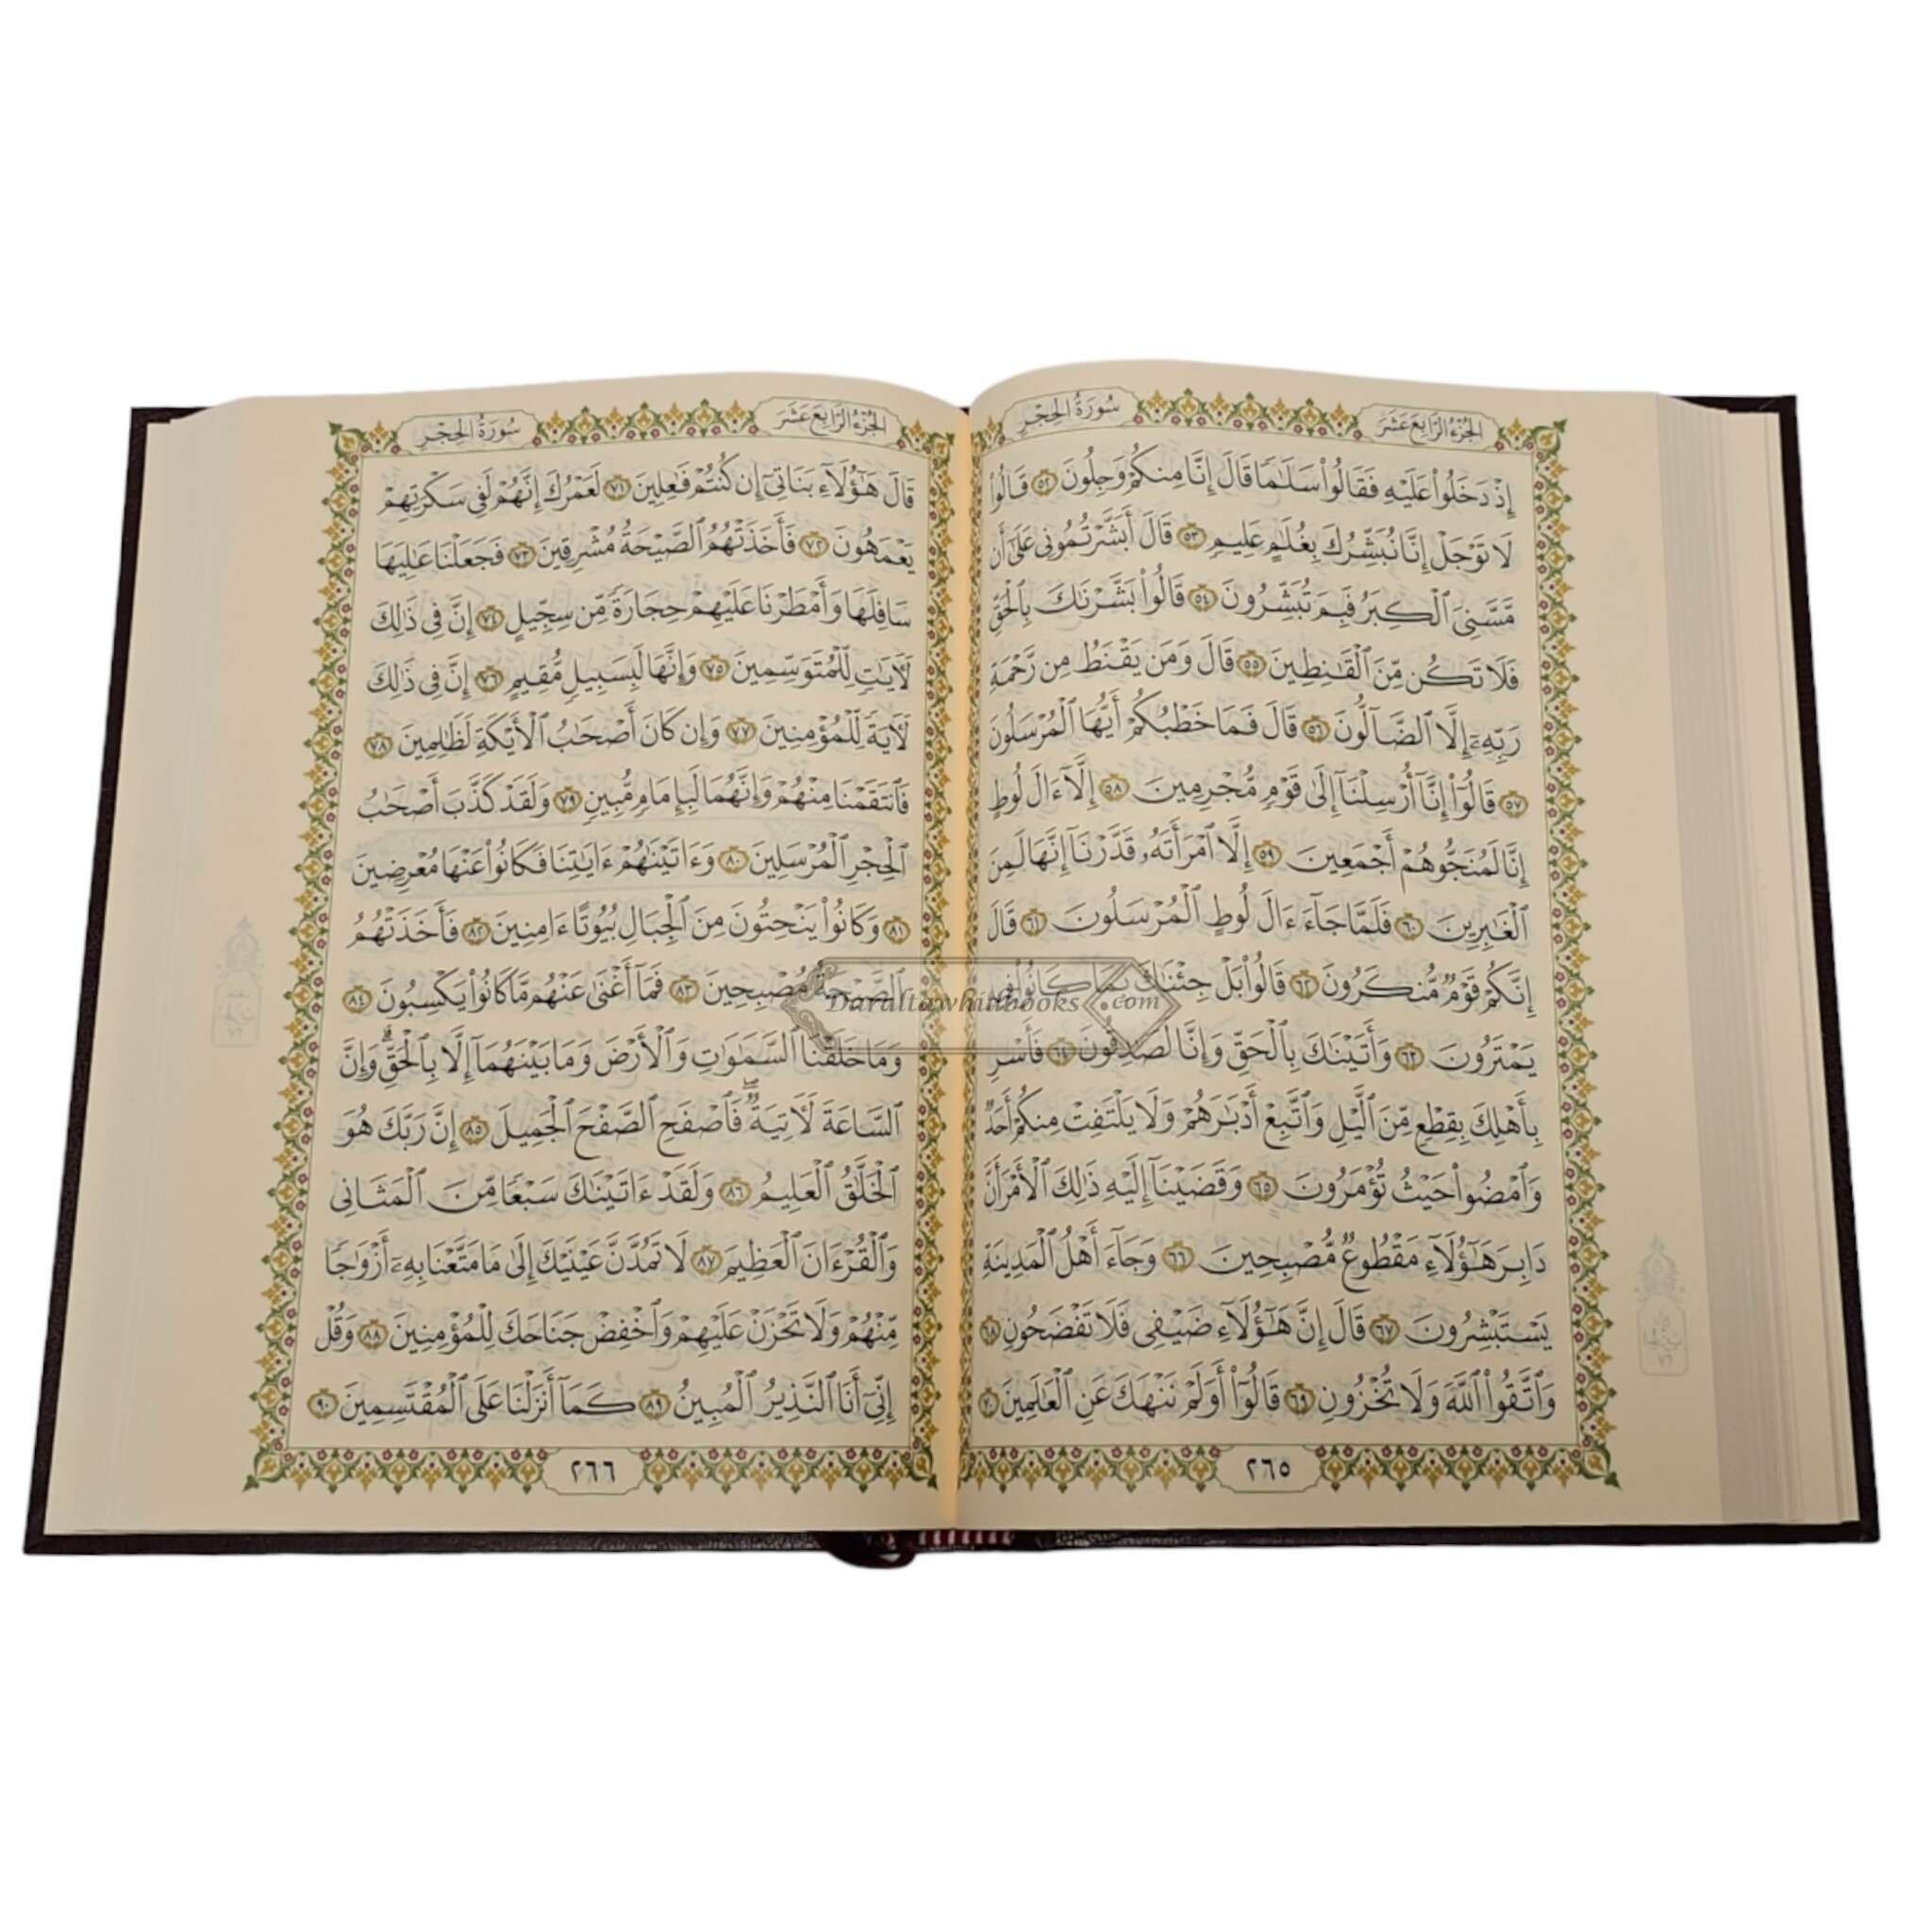 الجزء الرابع عشر
سورة الحجر
إِذْ دَخَلُوا۟ عَلَيْهِ فَقَالُوا۟ سَلَـٰمًا قَالَ إِنَّا مِنكُمْ وَجِلُونَ ٥٢ قَالُوا۟
لَا تَوْجَلْ إِنَّا نُبَشِّرُكَ بِغُلَـٰمٍ عَلِيمٍ ٥٣ قَالَ أَبَشَّرْتُمُونِى عَلَىٰٓ أَن
مَّسَّنِىَ ٱلْكِبَرُ فَبِمَ تُبَشِّرُونَ ٥٤ قَالُوا۟ بَشَّرْنَـٰكَ بِٱلْحَقِّ
فَلَا تَكُن مِّنَ ٱلْقَـٰنِطِينَ ٥٥ قَالَ وَمَن يَقْنَطُ مِن رَّحْمَةِ
رَبِّهِۦٓ إِلَّا ٱلضَّآلُّونَ ٥٦ قَالَ فَمَا خَطْبُكُمْ أَيُّهَا ٱلْمُرْسَلُونَ
٥٧ قَالُوٓا۟ إِنَّآ أُرْسِلْنَآ إِلَىٰ قَوْمٍ مُّجْرِمِينَ ٥٨ إِلَّآ ءَالَ لُوطٍ
إِنَّا لَمُنَجُّوهُمْ أَجْمَعِينَ ٥٩ إِلَّا ٱمْرَأَتَهُۥ قَدَّرْنَآ إِنَّهَا لَمِنَ
ٱلْغَـٰبِرِينَ ٦٠ فَلَمَّا جَآءَ ءَالَ لُوطٍ ٱلْمُرْسَلُونَ ٦١ قَالَ
إِنَّكُمْ قَوْمٌ مُّنكَرُونَ ٦٢ قَالُوا۟ بَلْ جِئْنَـٰكَ بِمَا كَانُوا۟ فِيهِ
يَمْتَرُونَ ٦٣ وَأَتَيْنَـٰكَ بِٱلْحَقِّ وَإِنَّا لَصَـٰدِقُونَ ٦٤ فَأَسْرِ
بِأَهْلِكَ بِقِطْعٍ مِّنَ ٱلَّيْلِ وَٱتَّبِعْ أَدْبَـٰرَهُمْ وَلَا يَلْتَفِتْ مِنكُمْ أَحَدٌ
وَٱمْضُوا۟ حَيْثُ تُؤْمَرُونَ ٦٥ وَقَضَيْنَآ إِلَيْهِ ذَٰلِكَ ٱلْأَمْرَ أَنَّ
دَابِرَ هَـٰٓؤُلَآءِ مَقْطُوعٌ مُّصْبِحِينَ ٦٦ وَجَآءَ أَهْلُ ٱلْمَدِينَةِ
يَسْتَبْشِرُونَ ٦٧ قَالَ إِنَّ هَـٰٓؤُلَآءِ ضَيْفِى فَلَا تَفْضَحُونِ ٦٨
وَٱتَّقُوا۟ ٱللَّهَ وَلَا تُخْزُونِ ٦٩ قَالُوٓا۟ أَوَلَمْ نَنْهَكَ عَنِ ٱلْعَـٰلَمِينَ ٧٠
٢٦٥
الجزء الرابع عشر
سورة الحجر
قَالَ هَـٰٓؤُلَآءِ بَنَاتِىٓ إِن كُنتُمْ فَـٰعِلِينَ ٧١ لَعَمْرُكَ إِنَّهُمْ لَفِى سَكْرَتِهِمْ
يَعْمَهُونَ ٧٢ فَأَخَذَتْهُمُ ٱلصَّيْحَةُ مُشْرِقِينَ ٧٣ فَجَعَلْنَا عَـٰلِيَهَا
سَافِلَهَا وَأَمْطَرْنَا عَلَيْهِمْ حِجَارَةً مِّن سِجِّيلٍ ٧٤ إِنَّ فِى ذَٰلِكَ
لَـَٔايَـٰتٍ لِّلْمُتَوَسِّمِينَ ٧٥ وَإِنَّهَا لَبِسَبِيلٍ مُّقِيمٍ ٧٦ إِنَّ فِى ذَٰلِكَ
لَـَٔايَةً لِّلْمُؤْمِنِينَ ٧٧ وَإِن كَانَ أَصْحَـٰبُ ٱلْأَيْكَةِ لَظَـٰلِمِينَ ٧٨
فَٱنتَقَمْنَا مِنْهُمْ وَإِنَّهُمَا لَبِإِمَامٍ مُّبِينٍ ٧٩ وَلَقَدْ كَذَّبَ أَصْحَـٰبُ
ٱلْحِجْرِ ٱلْمُرْسَلِينَ ٨٠ وَءَاتَيْنَـٰهُمْ ءَايَـٰتِنَا فَكَانُوا۟ عَنْهَا مُعْرِضِينَ
٨١ وَكَانُوا۟ يَنْحِتُونَ مِنَ ٱلْجِبَالِ بُيُوتًا ءَامِنِينَ ٨٢ فَأَخَذَتْهُمُ
ٱلصَّيْحَةُ مُصْبِحِينَ ٨٣ فَمَآ أَغْنَىٰ عَنْهُم مَّا كَانُوا۟ يَكْسِبُونَ ٨٤
وَمَا خَلَقْنَا ٱلسَّمَـٰوَٰتِ وَٱلْأَرْضَ وَمَا بَيْنَهُمَآ إِلَّا بِٱلْحَقِّ ۗ وَإِنَّ
ٱلسَّاعَةَ لَـَٔاتِيَةٌ ۖ فَٱصْفَحِ ٱلصَّفْحَ ٱلْجَمِيلَ ٨٥ إِنَّ رَبَّكَ هُوَ
ٱلْخَلَّـٰقُ ٱلْعَلِيمُ ٨٦ وَلَقَدْ ءَاتَيْنَـٰكَ سَبْعًا مِّنَ ٱلْمَثَانِى
وَٱلْقُرْءَانَ ٱلْعَظِيمَ ٨٧ لَا تَمُدَّنَّ عَيْنَيْكَ إِلَىٰ مَا مَتَّعْنَا بِهِۦٓ أَزْوَٰجًا
مِّنْهُمْ وَلَا تَحْزَنْ عَلَيْهِمْ وَٱخْفِضْ جَنَاحَكَ لِلْمُؤْمِنِينَ ٨٨ وَقُلْ
إِنِّىٓ أَنَا ٱلنَّذِيرُ ٱلْمُبِينُ ٨٩ كَمَآ أَنزَلْنَا عَلَى ٱلْمُقْتَسِمِينَ ٩٠
٢٦٦
Daraltawhidbooks.com